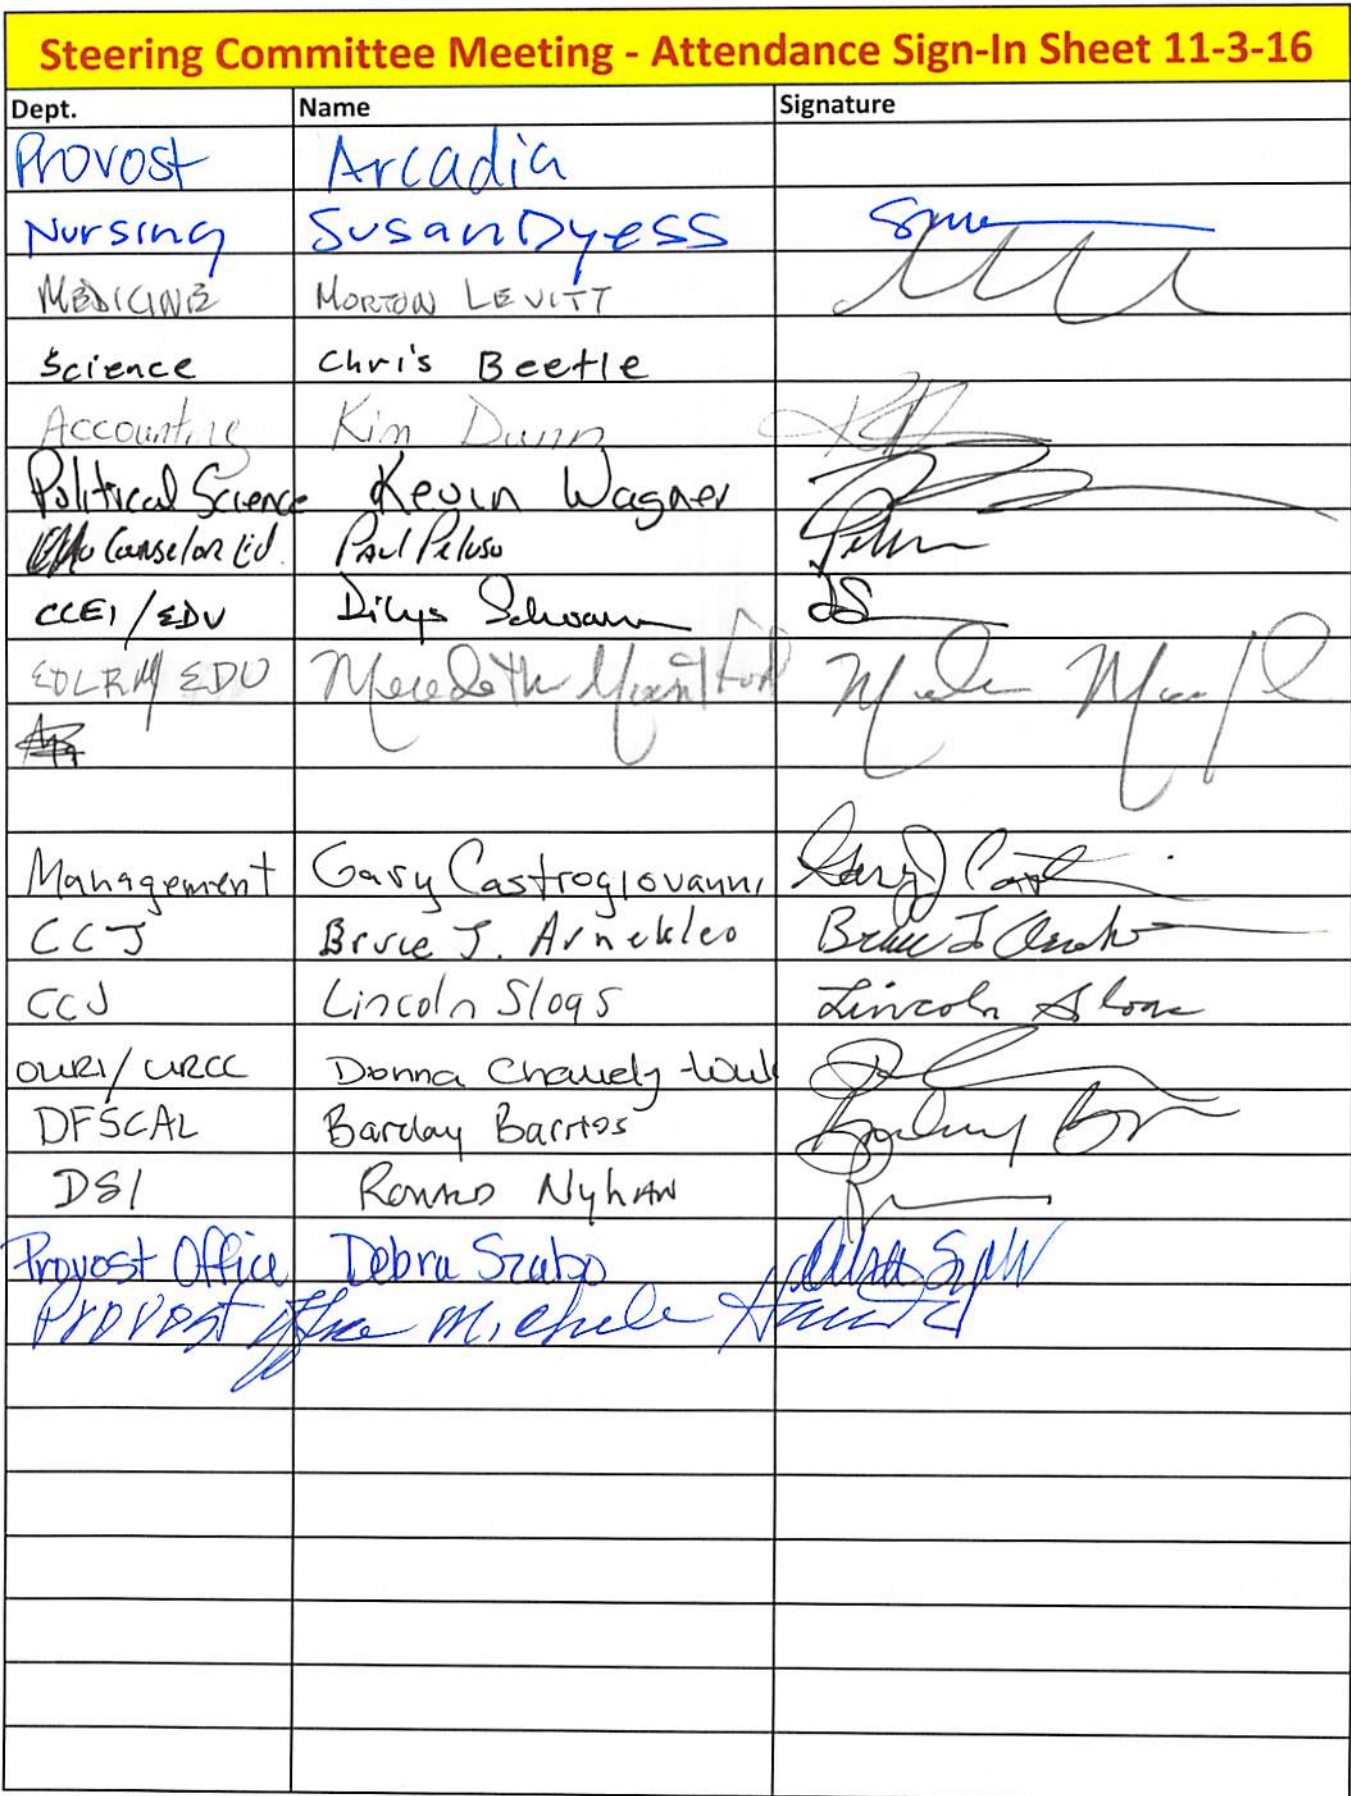 Steering Committee Meeting - Attendance Sign-In Sheet 11-3-16
Dept. Name Signature
Provost Arcadia
Nursing Susan Dyess
MEDICINE MORTON LEVITT
Science Chris Beetle
Accounting Kim Dunn
Political Science Kevin Wagner
Counselor Ed. Paul Peluso
CCEI/EDU Dilys Schoorman DS
EDLRM/EDU Meredith Mountford
Management Gary Castrogiovanni Gary J
CCJ Bruce J. Arneklev Bruce J
CCJ Lincoln Sloas Lincoln Sloas
OURI/URCC Donna Chamely-Wiik
DFSCAL Barclay Barrios
DSI Ronald Nyhan
Provost Office Debra Szabo Debra Szabo
Provost Office Michele